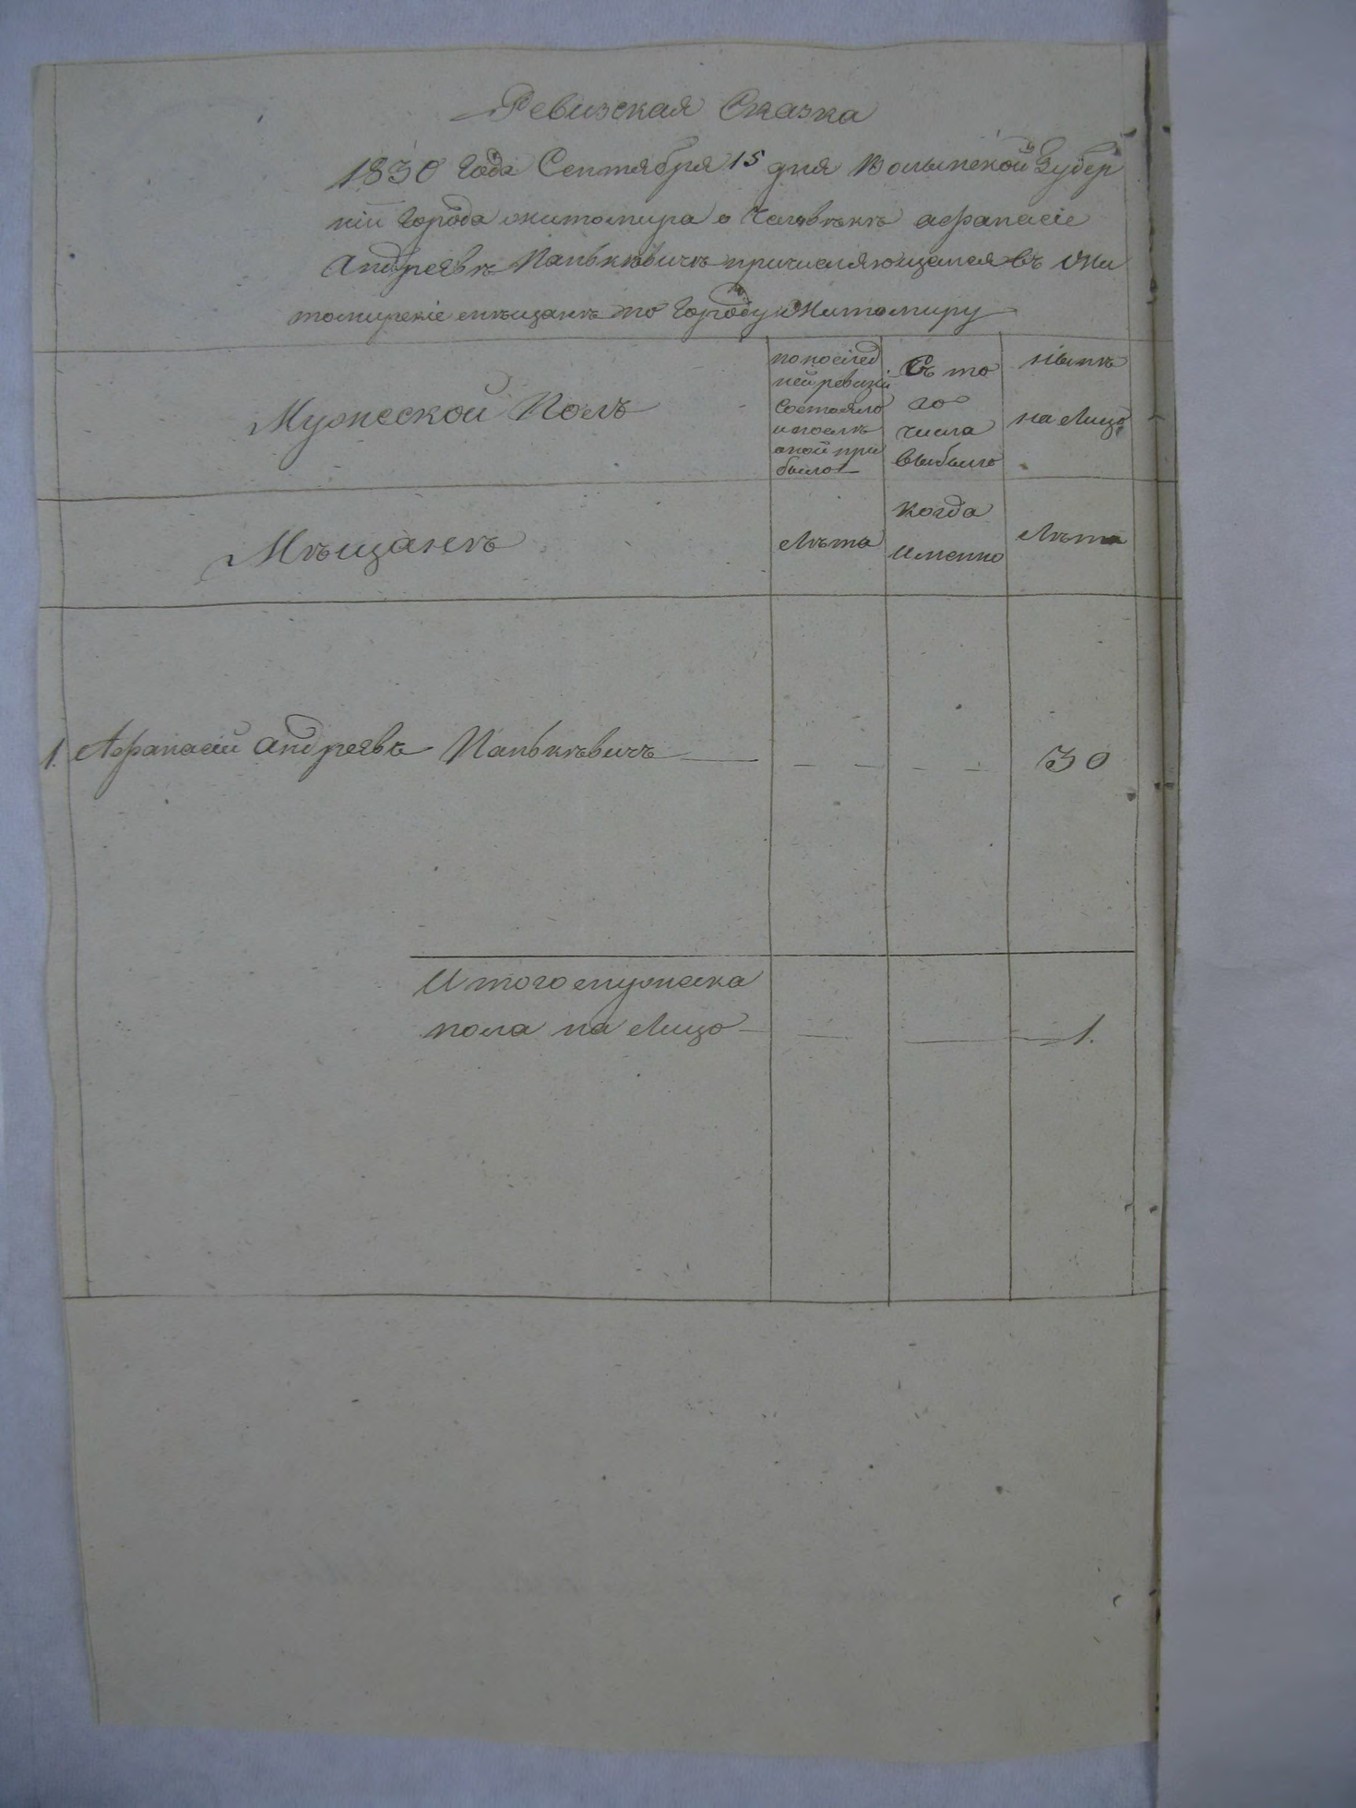 Ревизская Сказка
1830 года Сентября 15 дня Волынской Губер
нiи города житомира о человѣкѣ афанасiе
Андреевѣ Панькѣвичѣ причисляющемся въ жи
томирскiе мѣщане по городу Житомиру
Мужеской Полъ
по послед
ней ревизiи
состояло
и после
оной при
было
Съ то
го
числа
выбыло
Нынѣ
на Лицо
Мѣщанѣ
Лѣта
когда
Именно
Лѣта
1. Афанасiй андреевъ Панькѣвичъ — — — — — 30
Итого мужеска
пола на Лицо — — — 1.